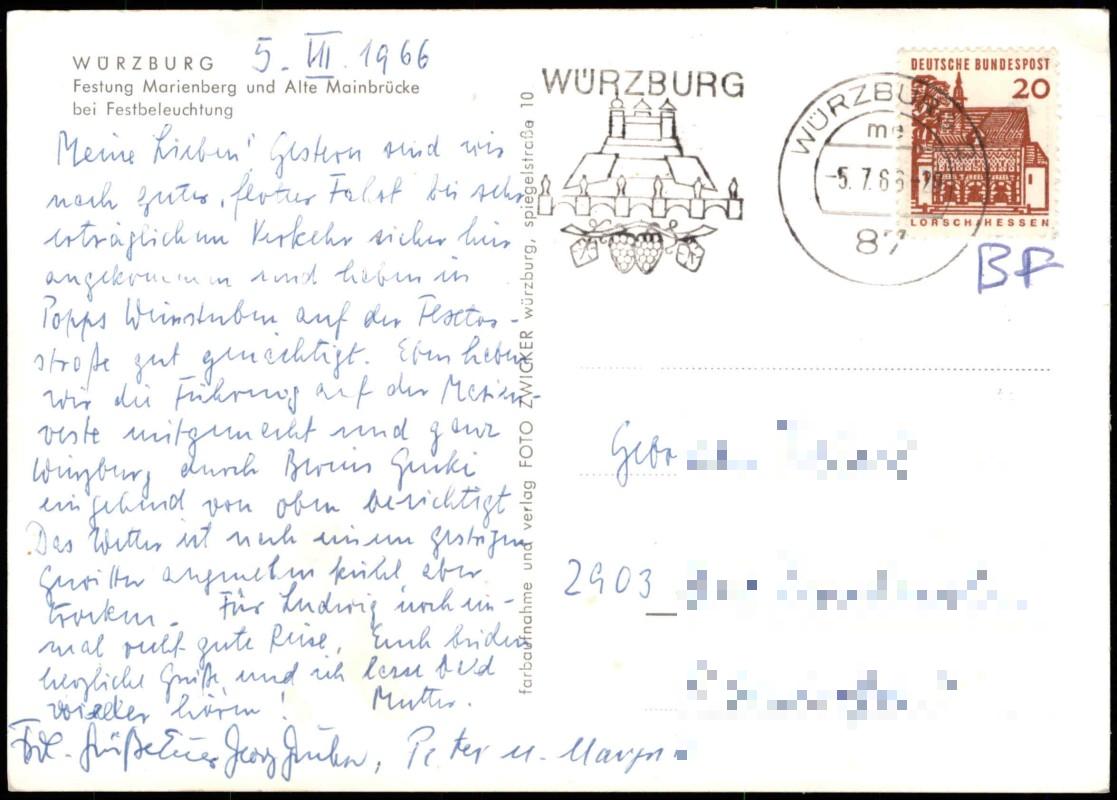 WÜRZBURG
5. VII. 1966
Festung Marienberg und Alte Mainbrücke
bei Festbeleuchtung
Meine Lieben! Gestern sind wir
nach guter, flotter Fahrt bei sehr
erträglichem Verkehr sicher hier
angekommen und haben in
Popps Weinstuben auf der
straße gut genächtigt. Eben haben
wir die Führung auf der Marien-
veste mitgemacht und ganz
Würzburg durch
eingehend von oben besichtigt
Das Wetter ist nach einem gestrigen
Gewitter angenehm kühl aber
trocken. Für Ludwig noch ein-
mal recht gute Reise, Euch beiden
herzliche Grüße und ich lasse bald
wieder hören! Mutter.
Grüße Euer Georg, Peter u.
farbaufnahme und verlag FOTO ZWICKER würzburg, spiegelstraße 10
WÜRZBURG
WÜRZBURG
me
-5.7.66
87
DEUTSCHE BUNDESPOST
20
LORSCH/HESSEN
BF
Gebr
2903